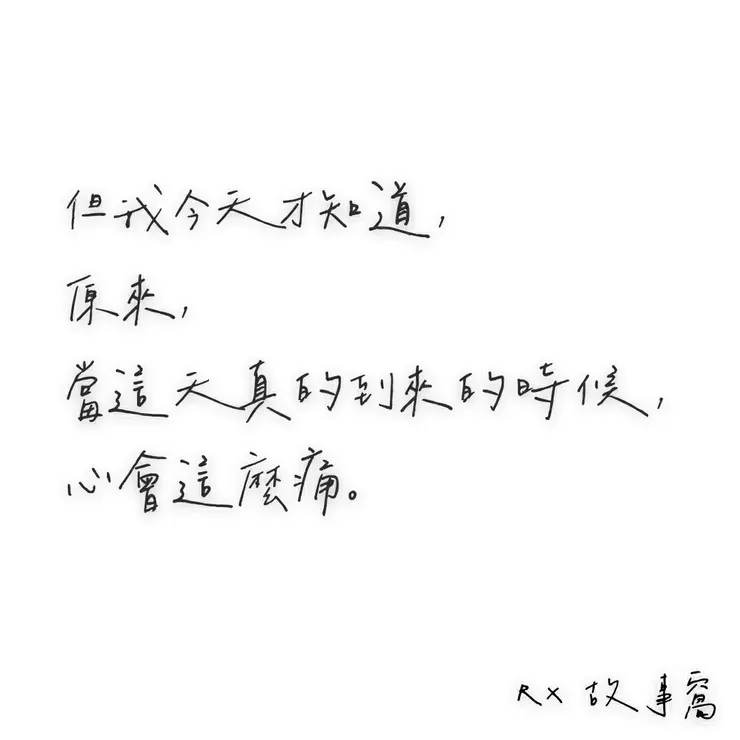 但我今天才知道,
原來,
當這天真的到來的時候,
心會這麼痛。
RX 故事窩